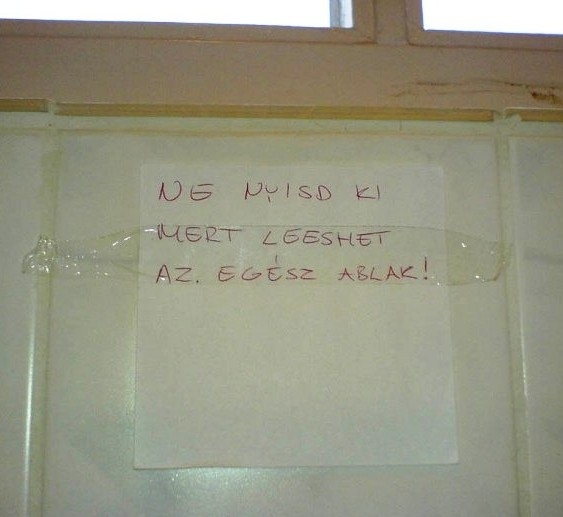 NE NYISD KI
MERT LEESHET
AZ. EGÉSZ ABLAK!